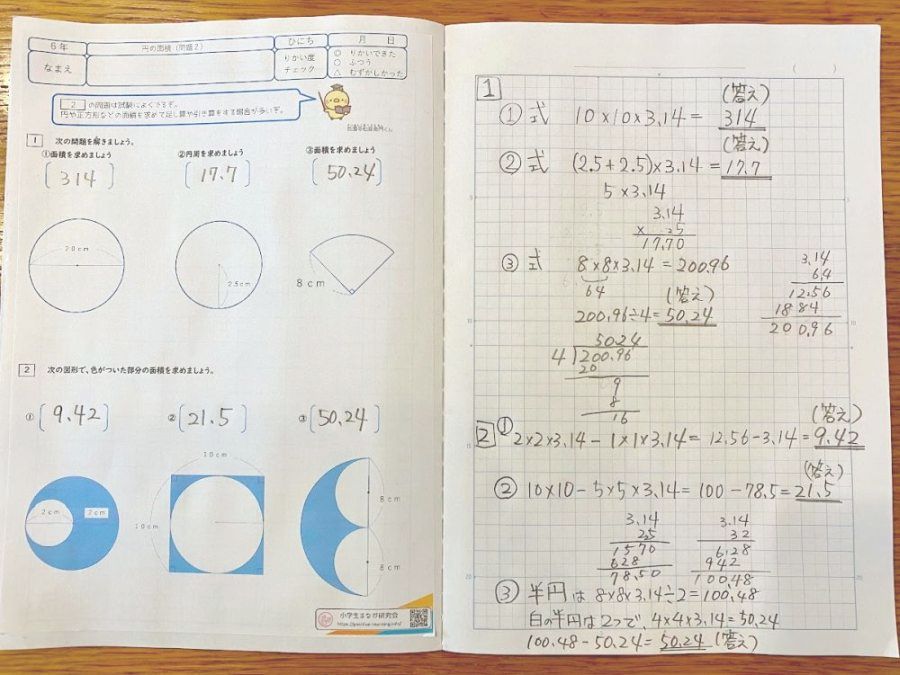 6年
円の面積(問題2)
ひにち
月 日
なまえ
りかい度
チェック
◎ りかいできた
○ ふつう
△ むずかしかった
2 の問題は試験によくでるぞ。
円や正方形などの面積を求めて足し算や引き算をする場合が多いぞ。
1 次の問題を解きましょう。
①面積を求めましょう
②円周を求めましょう
③面積を求めましょう
[314]
[17.7]
[50.24]
20cm
2.5cm
8cm
2 次の図形で、色がついた部分の面積を求めましょう。
① [9.42]
② [21.5]
③ [50.24]
2cm
2cm
10cm
10cm
8cm
8cm
小学生まなび研究会
1
(答え)
① 式 10×10×3.14= 314
(答え)
② 式 (2.5+2.5)×3.14=17.7
5×3.14
3.14
17.70
③ 式 8×8×3.14=200.96
64
(答え)
200.96÷4=50.24
3.14
64
12.56
1884
200.96
50.24
4 200.96
20
9
8
16
2
(答え)
① 2×2×3.14-1×1×3.14=12.56-3.14=9.42
(答え)
② 10×10-5×5×3.14=100-78.5=21.5
3.14
25
1570
628
78.50
3.14
32
6.28
942
100.48
③ 半円は 8×8×3.14÷2=100.48
白の半円は2つで、4×4×3.14=50.24
100.48-50.24=50.24(答え)